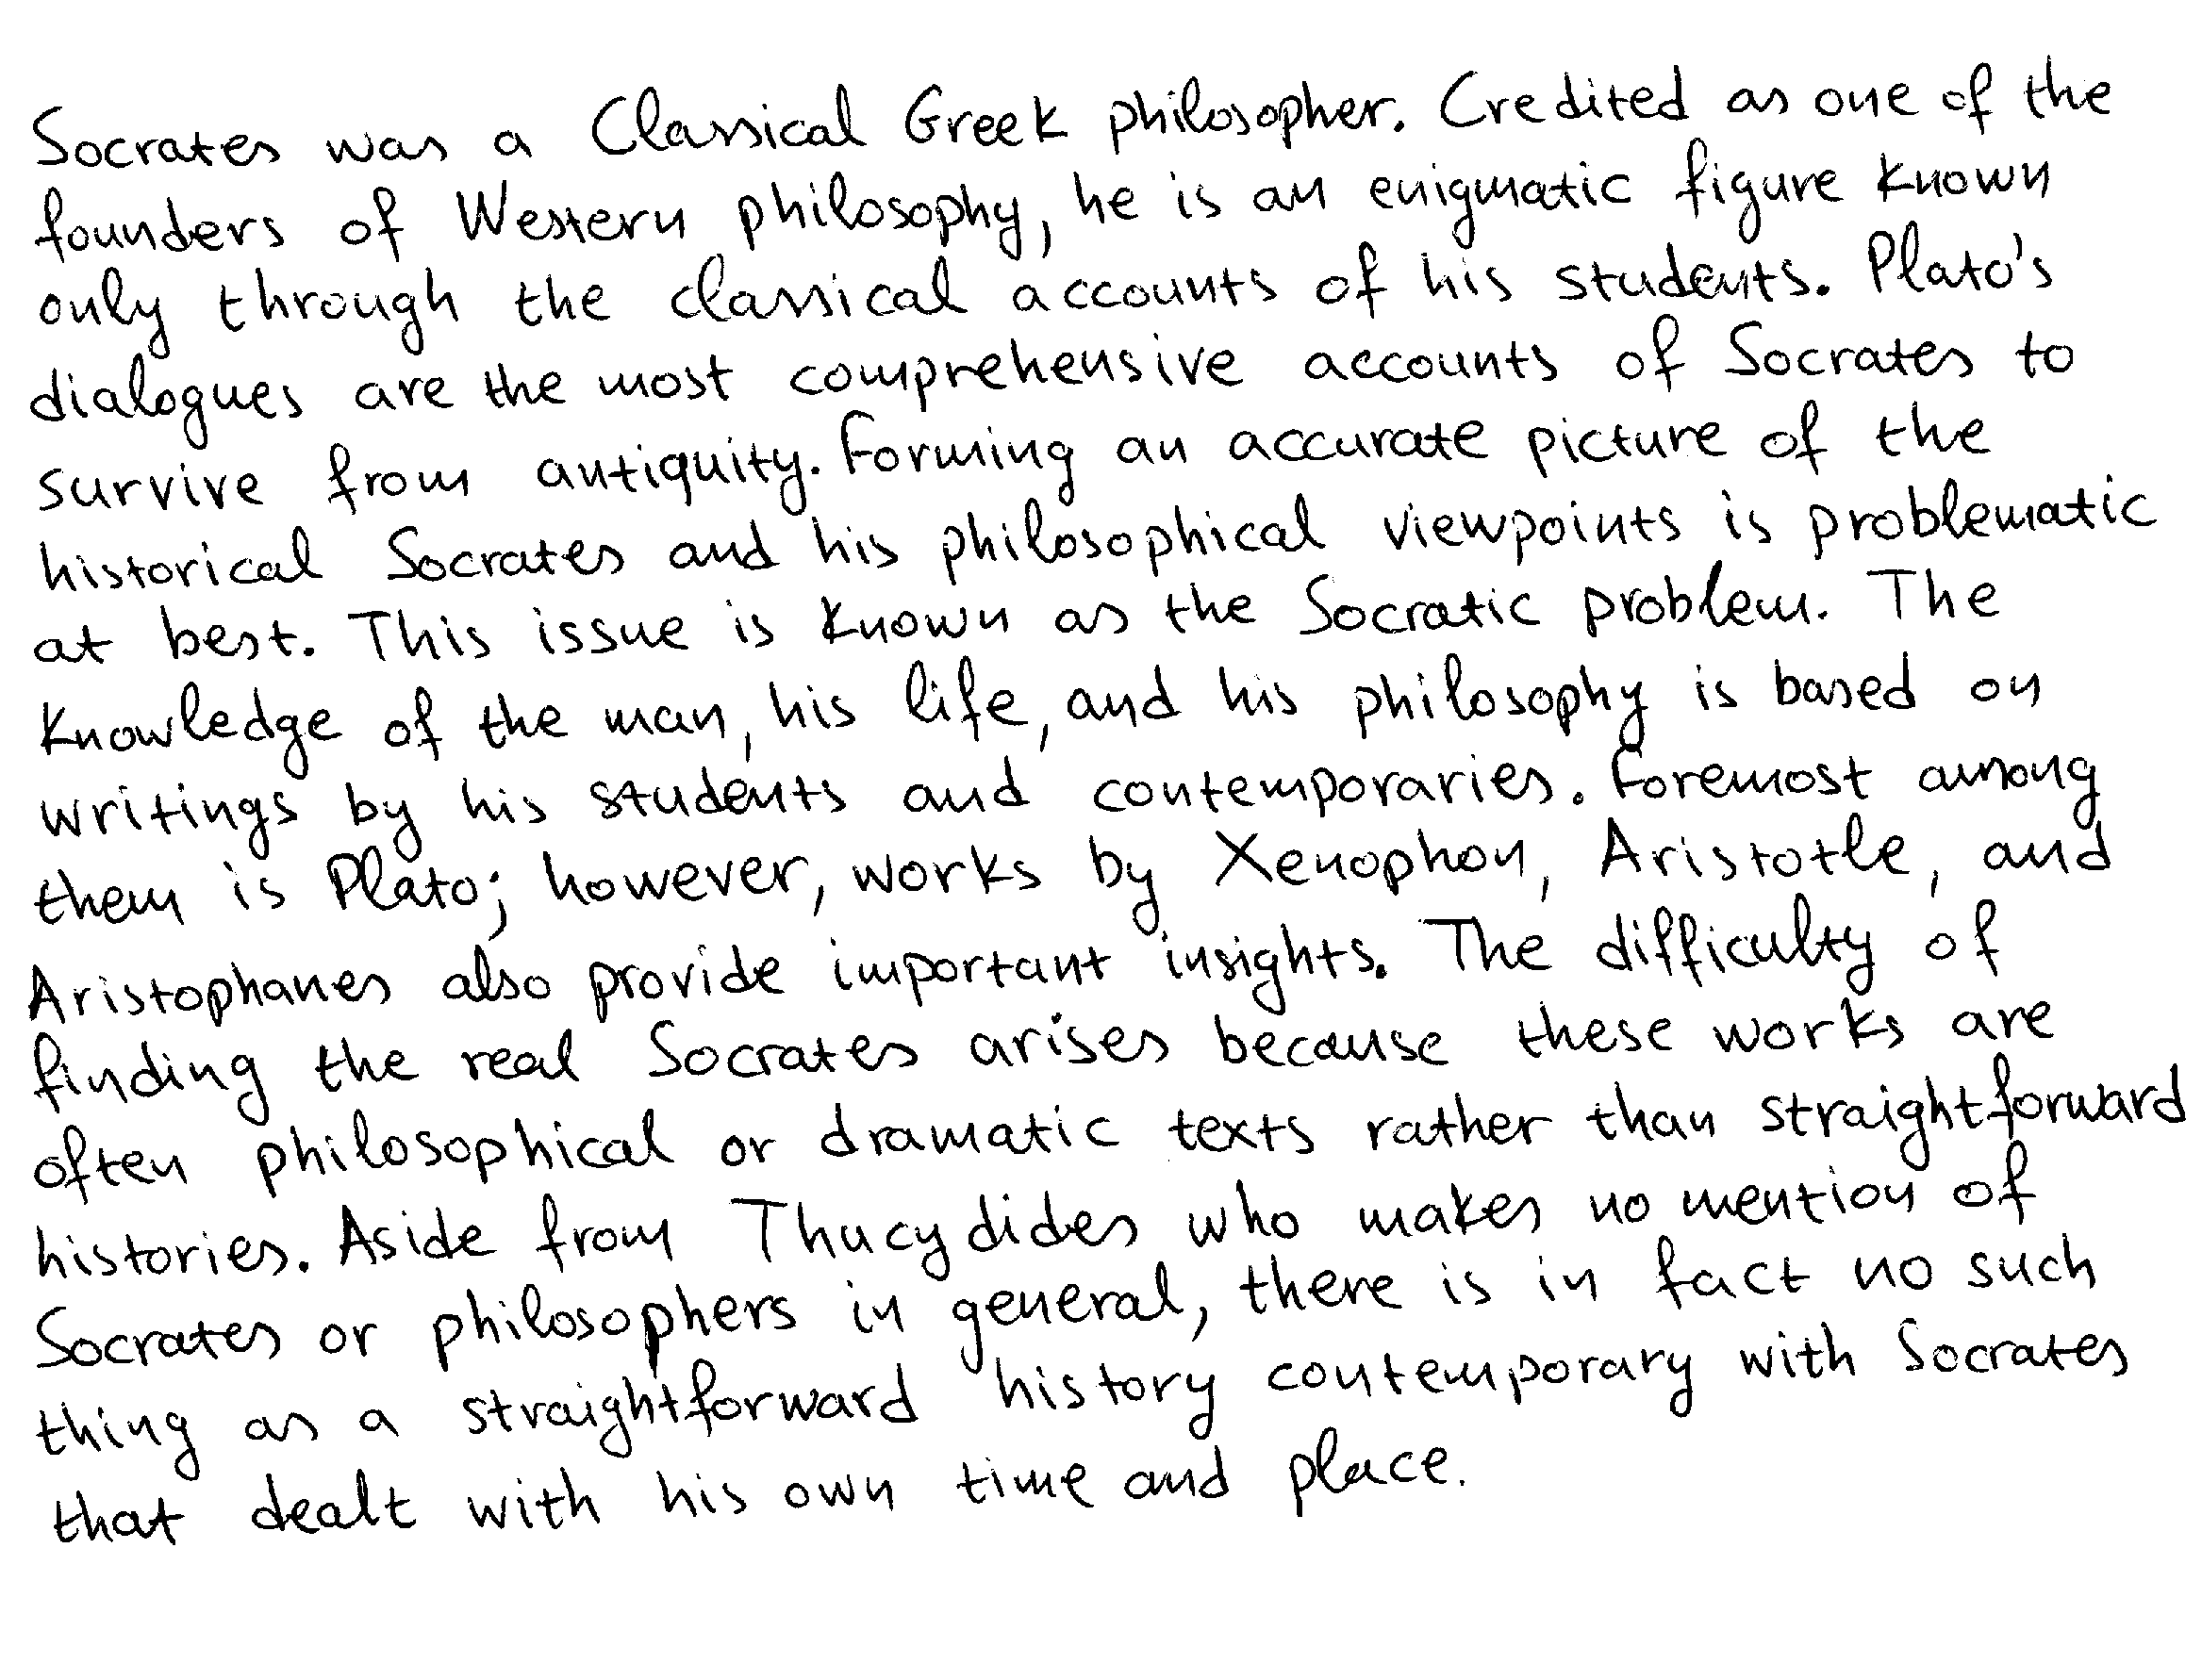 Socrates was a Classical Greek philosopher. Credited as one of the
founders of Western philosophy, he is an enigmatic figure known
only through the classical accounts of his students. Plato's
dialogues are the most comprehensive accounts of Socrates to
survive from antiquity. Forming an accurate picture of the
historical Socrates and his philosophical viewpoints is problematic
at best. This issue is known as the Socratic problem. The
knowledge of the man, his life, and his philosophy is based on
writings by his students and contemporaries. Foremost among
them is Plato; however, works by Xenophon, Aristotle, and
Aristophanes also provide important insights. The difficulty of
finding the real Socrates arises because these works are
often philosophical or dramatic texts rather than straightforward
histories. Aside from Thucydides who makes no mention of
Socrates or philosophers in general, there is in fact no such
thing as a straightforward history contemporary with Socrates
that dealt with his own time and place.